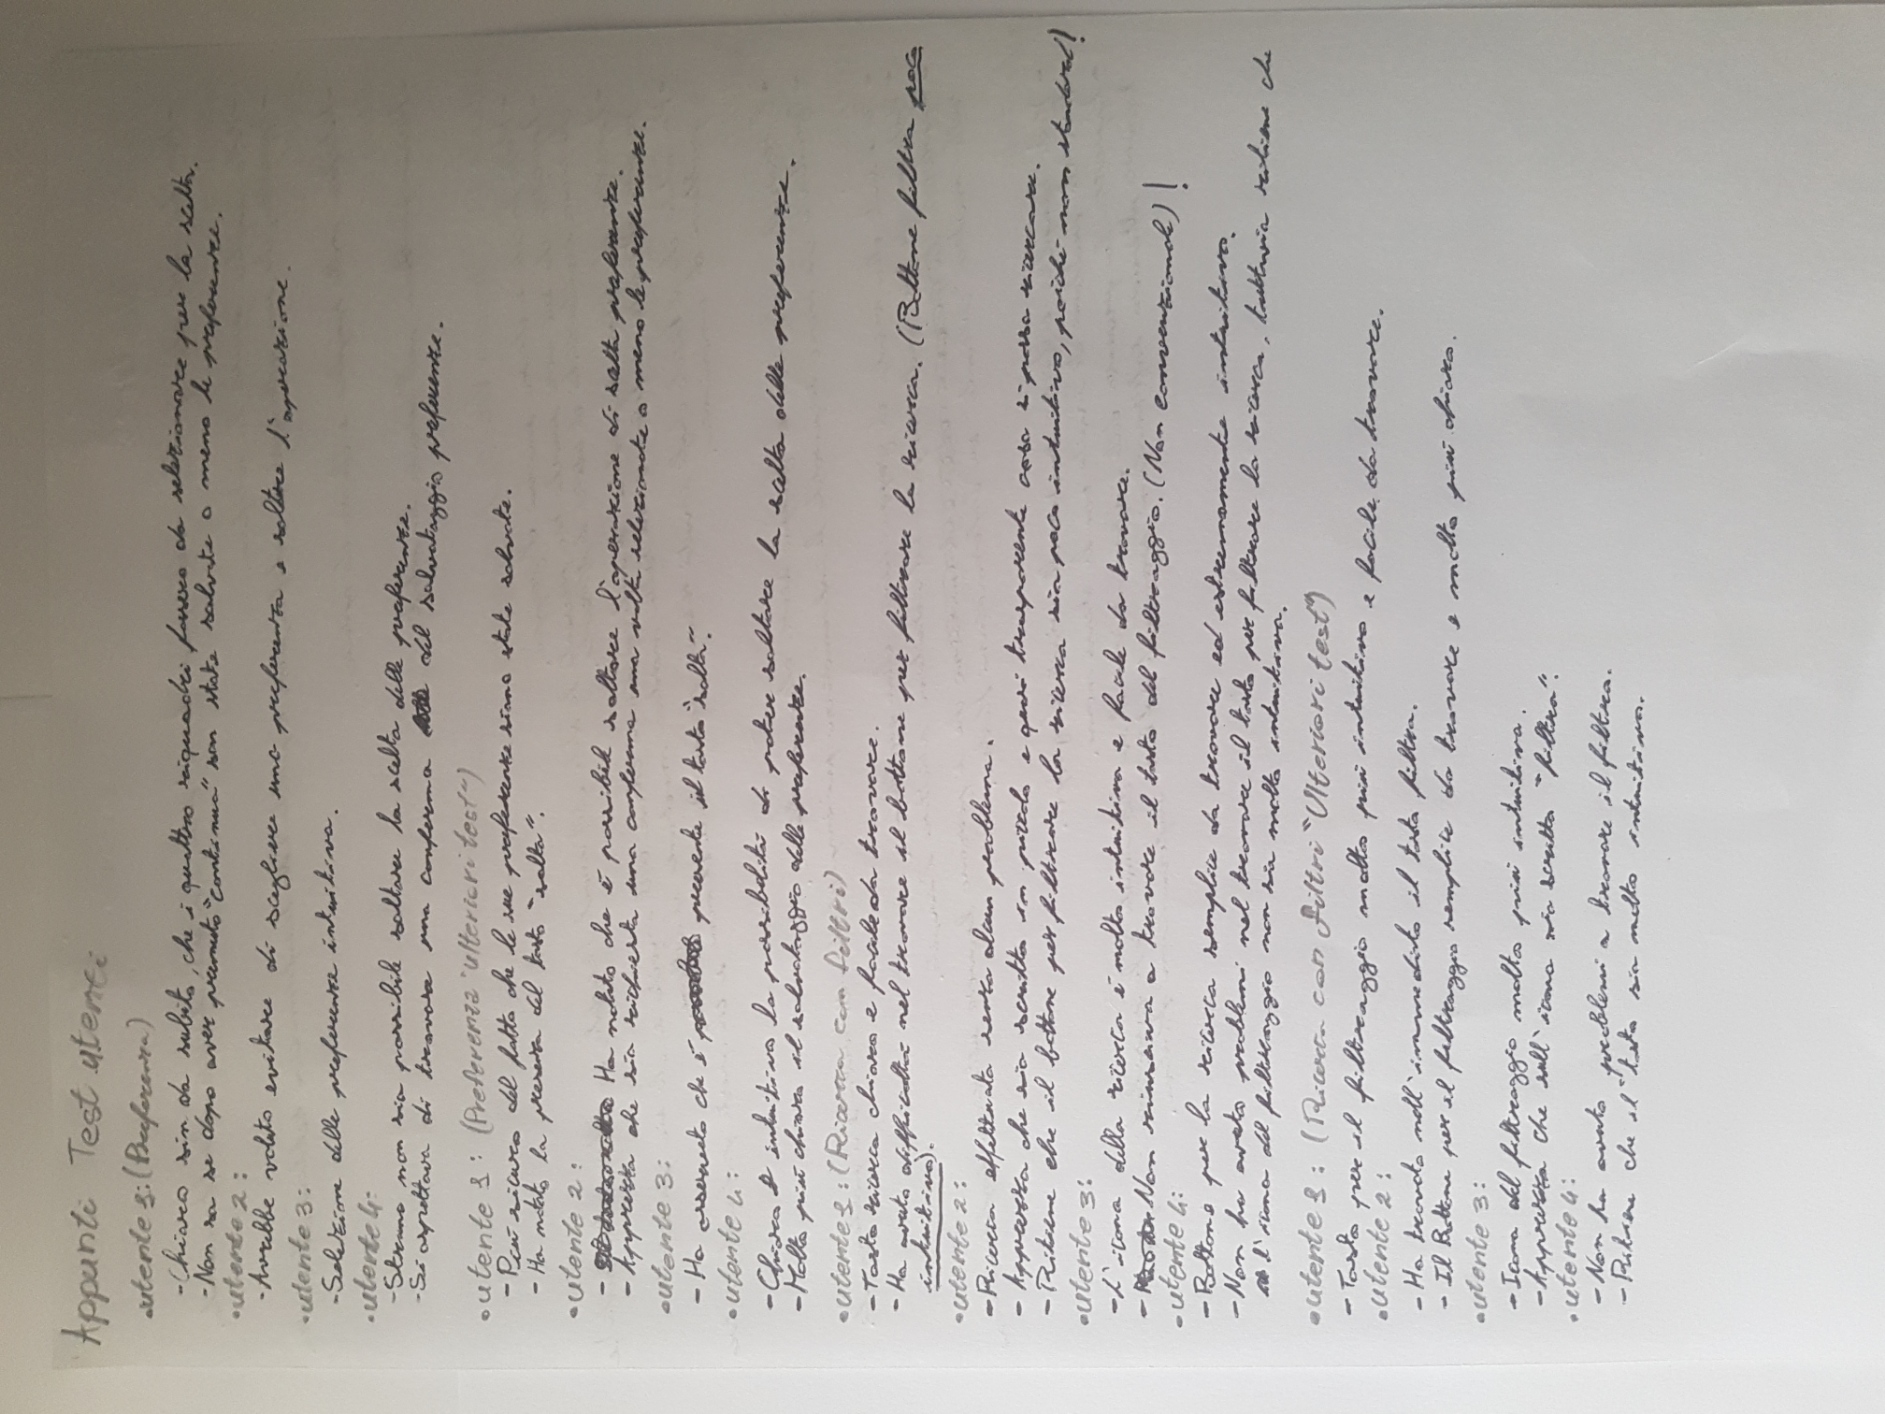 Appunti Test utenti
• utente 1: (Preferenza)
- Chiaro sin da subito, che i quattro riquadri fossero da selezionare per la scelta.
- Non sa se dopo aver premuto "continua" son state salvate o meno le preferenze.
• utente 2:
- Avrebbe voluto evitare di scegliere una preferenza e saltare l'operazione.
• utente 3:
- Selezione delle preferenze intuitiva.
• utente 4:
- Strano non sia possibile saltare la scelta delle preferenze.
- Si aspettava di trovare una conferma del salvataggio preferenze.
• utente 1: (Preferenza "ulteriori test")
- Più sicuro del fatto che le sue preferenze siano state salvate.
- Ha notato la presenza del tasto "salta".
• utente 2:
- Ha notato che è possibile saltare l'operazione di scelta preferenze.
- Apprezza che sia richiesta una conferma una volta selezionate o meno le preferenze.
• utente 3:
- Ha osservato che è presente il tasto "salta".
• utente 4:
- Chiara e intuitiva la possibilità di poter saltare la scelta delle preferenze.
- Molto più chiaro il salvataggio delle preferenze.
• utente 1: (Ricerca con filtri)
- Tasto ricerca chiaro e facile da trovare.
- Ha avuto difficoltà nel trovare il bottone per filtrare la ricerca. (Bottone filtra poco
intuitivo).
• utente 2:
- Ricerca effettuata senza alcun problema.
- Apprezza che sia scritto in piccolo e quasi trasparente cosa si possa ricercare.
- Ritiene che il bottone per filtrare la ricerca sia poco intuitivo, poiché non standard!
• utente 3:
- L'icona della ricerca è molto intuitiva e facile da trovare.
- Non riusciva a trovare il tasto del filtraggio. (Non convenzionale)!
• utente 4:
- Bottone per la ricerca semplice da trovare ed estremamente intuitivo.
- Non ha avuto problemi nel trovare il tasto per filtrare la ricerca, tuttavia ritiene che
l'icona del filtraggio non sia molto intuitiva.
• utente 1: (Ricerca con filtri "Ulteriori test")
- Tasto per il filtraggio molto più intuitivo e facile da trovare.
• utente 2:
- Ha trovato nell'immediato il tasto filtra.
- Il Bottone per il filtraggio semplice da trovare e molto più chiaro.
• utente 3:
- Icona del filtraggio molto più intuitiva.
- Apprezza che sull'icona sia scritto "filtra".
• utente 4:
- Non ha avuto problemi a trovare il filtra.
- Ritiene che il tasto sia molto intuitivo.